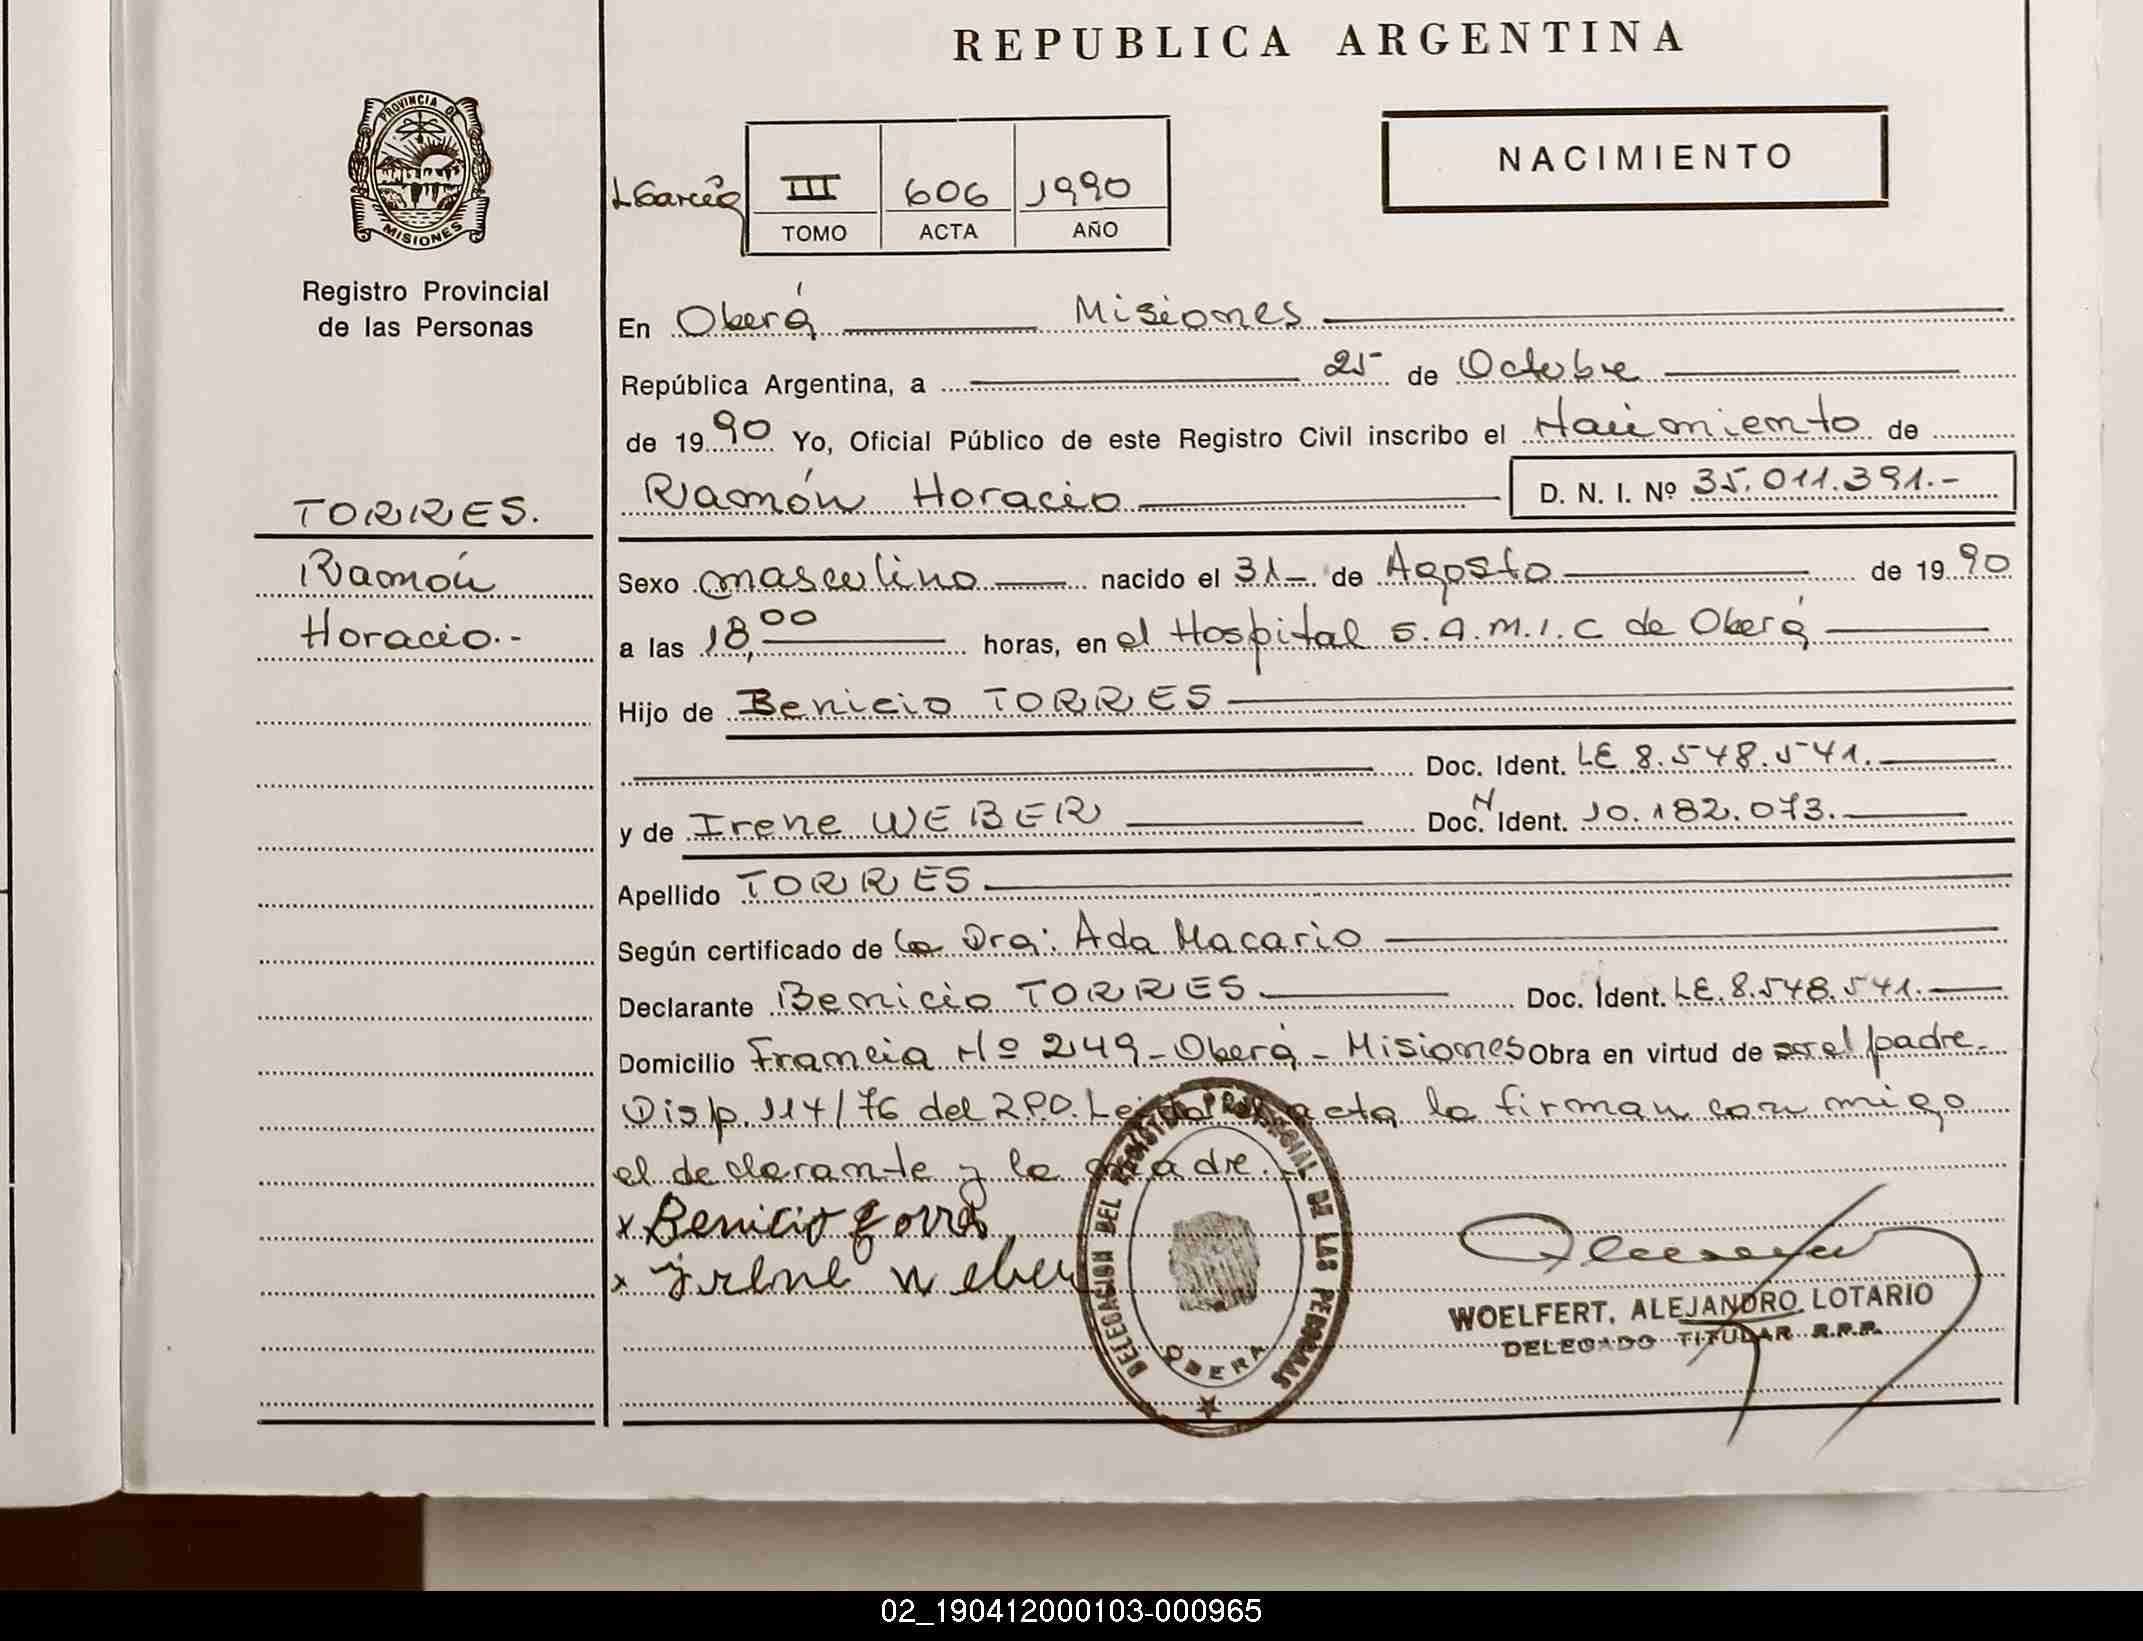 REPUBLICA ARGENTINA
PROVINCIA DE
MISIONES
Registro Provincial
de las Personas
NACIMIENTO
LGarcía
III 606 1990
TOMO ACTA AÑO
En Oberá Misiones
República Argentina, a 25 de Octubre
de 1990 Yo, Oficial Público de este Registro Civil inscribo el Nacimiento de
Ramón Horacio D. N. I. Nº 35.011.391.-
TORRES.
Ramón
Horacio.-
Sexo masculino nacido el 31 de Agosto de 1990
a las 18,00 horas, en el Hospital S.A.M.I.C de Oberá
Hijo de Benicio TORRES
Doc. Ident. LE 8.548.541.
y de Irene WEBER Doc. N Ident. 10.182.073.
Apellido TORRES
Según certificado de la Dra: Ada Macario
Declarante Benicio TORRES Doc. Ident. LE.8.548.541.
Domicilio Francia Nº 249 - Oberá - Misiones Obra en virtud de ser el padre.
Disp. 114/76 del R.P.D. Leída el acta la firman con migo
el declarante y la madre.
x Benicio Torres
x Irene Weber
DELEGACION DEL REGISTRO PROVINCIAL DE LAS PERSONAS
OBERA
WOELFERT, ALEJANDRO LOTARIO
DELEGADO TITULAR R.P.P.
02_190412000103-000965